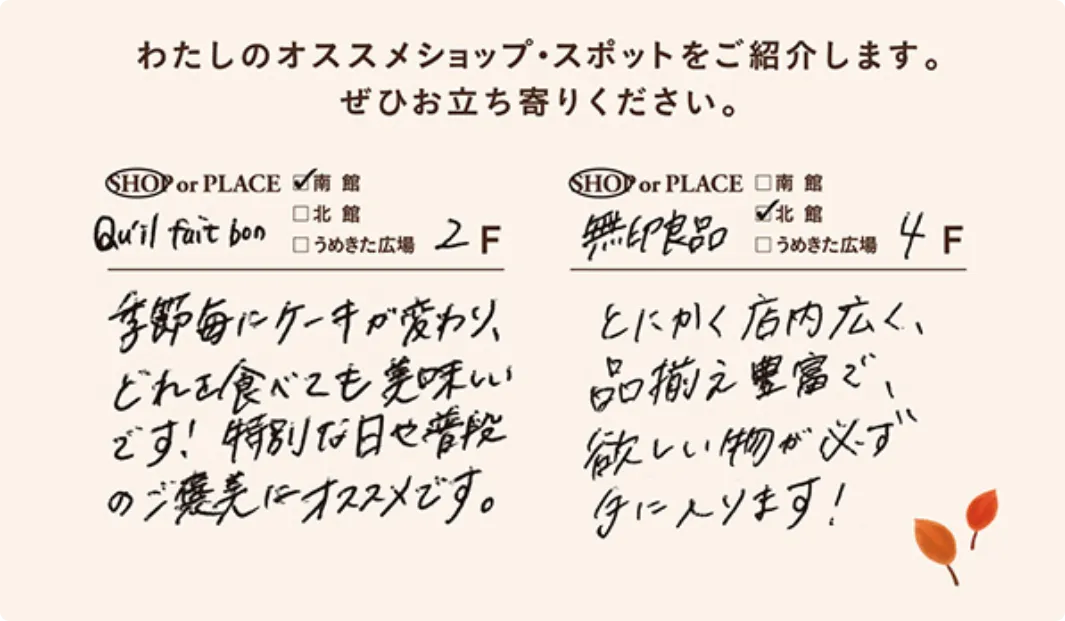 わたしのオススメショップ・スポットをご紹介します。
ぜひお立ち寄りください。
SHOP or PLACE
☑南館
□北館
□うめきた広場
Qu'il fait bon
2 F
季節毎にケーキが変わり、
どれを食べても美味しい
です！特別な日や普段
のご褒美にオススメです。
SHOP or PLACE
□南館
☑北館
□うめきた広場
無印良品
4 F
とにかく店内広く、
品揃え豊富で、
欲しい物が必ず
手に入ります！